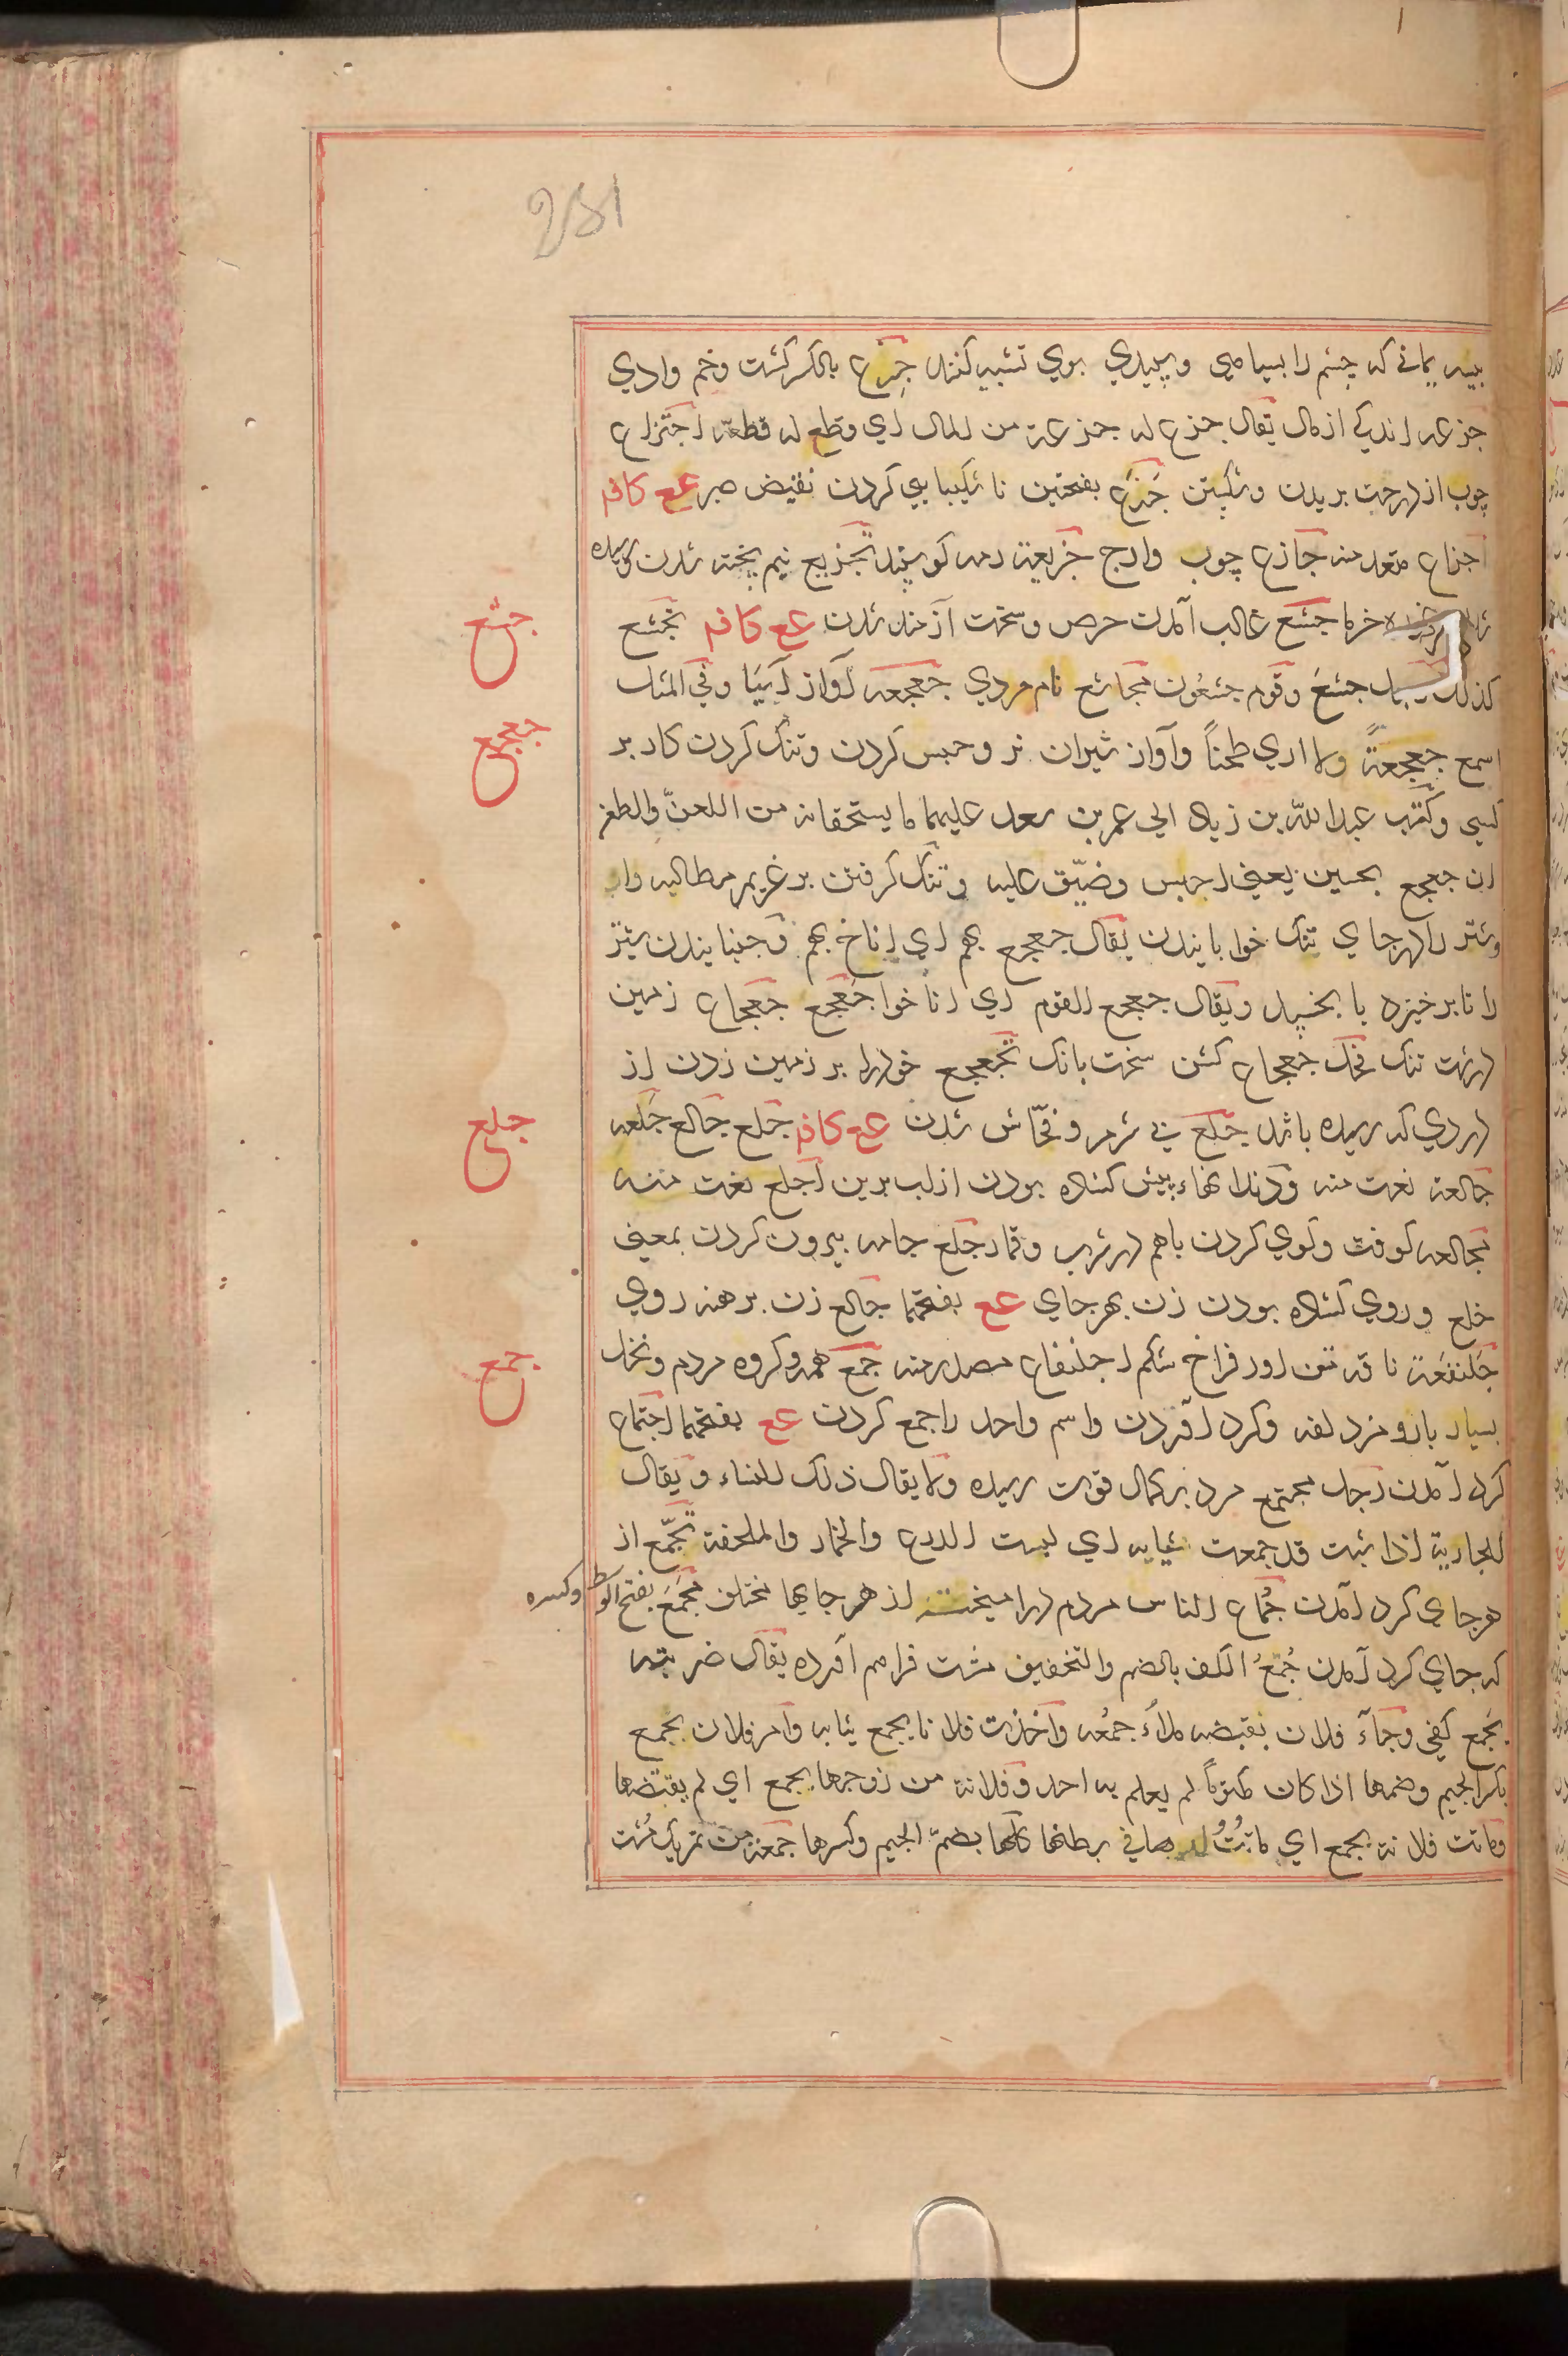 بیسه یمانی که چشم را بسیاهی وسپیدی بوی تشبیه کنند جِزع بالکسر کشت وخم وادی
جزعه اندکی از مال یقال جزع له جزعة من المال ای قطع له قطعة اجتزاع
چوب از درخت بریدن وشکستن جَزَع بفتحتین ناشکیبایی کردن نقیض صبر عع کافه
اجزاع متعد منه جازع چوب وادج جزیعة رمه کوسپند تجزیع نیم پخته شدن ورسیده
خرما جشع غالب آمدن حرص وسخت آزمند شدن عع کافه تجشع
کذلک رجل جشعَ وقوم جشعُون مجاشع نام مردی جعجعه آواز آسیا وفی المثل
اسمع جعجعةً ولا اری طحناً وآواز شیران نر وحبس کردن وتنک کردن کار بر
کسی وکتب عبدالله بن زیاد الی عمر بن سعد علیهما ما یستحقانه من اللعن والطعن
ان جعجع بحسین یعنی احبس وضیّق علیه وتنک کرفتن بر غریم مطالبه وام
وشتر را در جای تنک خوابانیدن یقال جعجع بهم ای اناخ بهم وجنبانیدن شتر
را تا برخیزد یا بخسپد ویقال جعجع القوم ای اناخوا جَعجَع جعجاع زمین
درشت تنک جعجاع کشن سخت بانک تجعجع خود را بر زمین زدن از
دردی که رسیده باشد جلع بی شرم وفحّاش شدن عع کافه جلع جالع جلعه
جالعة نعت منه ودندانهاء پیش کشاده بودن از لب برین اجلع نعت منه
مجالعه کوفت وکوی کردن باهم در شرب وقمار جلع جامه بیرون کردن بمعنی
خلع وروی کشاده بودن زن بهر جای عع بفتحهما جالع زن برهنه روی
جلنفعة ناقه تن آور فراخ شکم اجلنفاع مصدر منه جمع همه وکروه مردم ونخل
بسیار بار ومزدلفه وکرد آوردن واسم واحد را جمع کردن عع بفتحهما اجتماع
کرد آمدن رجل مجتمع مرد بر کمال قوت رسیده ولا یقال ذلک للنساء ویقال
للجاریة اذا شبت قد جمعت ثیابه ای لبست الدرع والخمار والملحفة تجمّع از
هر جای کرد آمدن جُمّاع الناس مردم درآمیخته از هر جایها مختلف مجمَع بفتح الوسط وکسره
که جای کرد آمدن جُمعُ الکف بالضم والتخفیف مشت فراهم آورده یقال ضربته
بجمع کفی وجاء فلان بقبضه ملأ جمعه واخذت فلانا بجمع ثیابه وامر فلان بجمع
بکسر الجیم وضمها اذا کان مکتوماً لم یعلم به احد وفلانة من زوجها بجمع ای لم یقتضها
وماتت فلانة بجمع ای ماتت ولدها فی بطنها کلها بضمّ الجیم وکسرها جمعة من تمر یک مُشت
جشع
جعجع
جلع
جمع